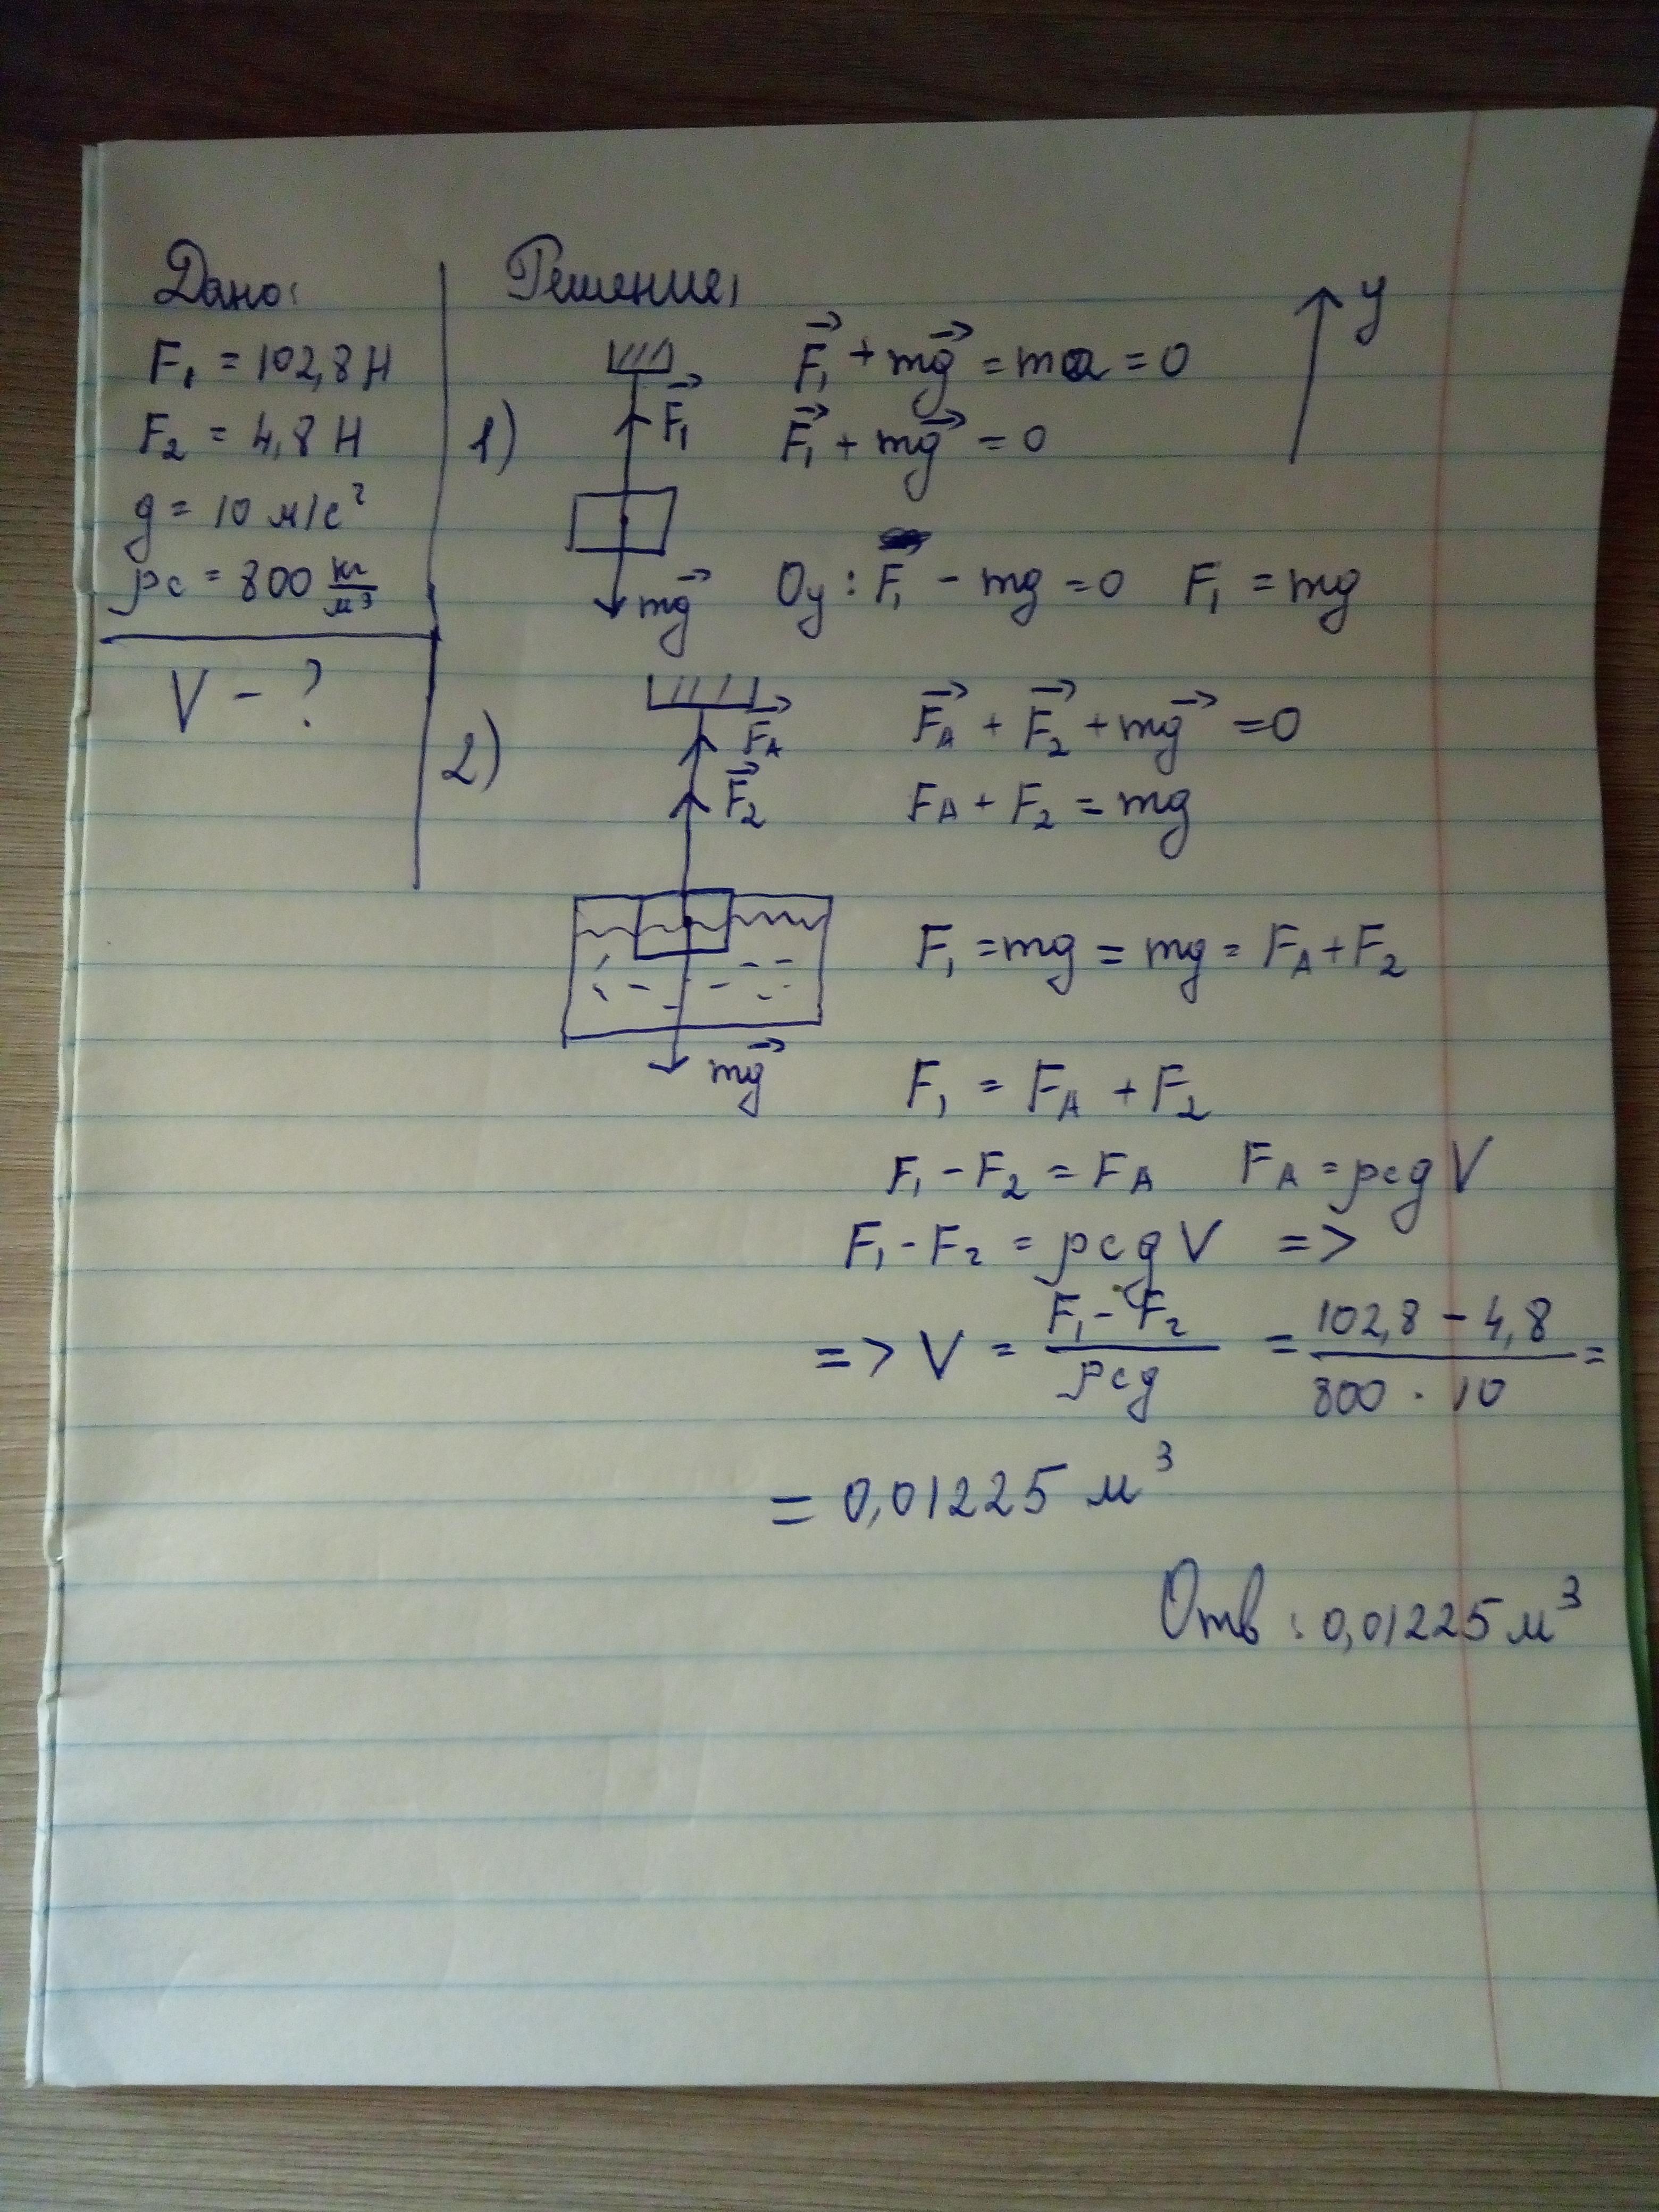 Дано:
F₁ = 102,8 Н
F₂ = 4,8 Н
g = 10 м/с²
ρс = 800 кг/м³
V - ?
Решение:
y
1)
F₁
mg
F₁ + mg = ma = 0
F₁ + mg = 0
Oy: F₁ - mg = 0 F₁ = mg
2)
FA
F₂
mg
FA + F₂ + mg = 0
FA + F₂ = mg
F₁ = mg = mg = FA + F₂
F₁ = FA + F₂
F₁ - F₂ = FA FA = ρсgV
F₁ - F₂ = ρсgV =>
=> V = F₁ - F₂ / ρсg = 102,8 - 4,8 / 800 · 10 =
= 0,01225 м³
Отв: 0,01225 м³